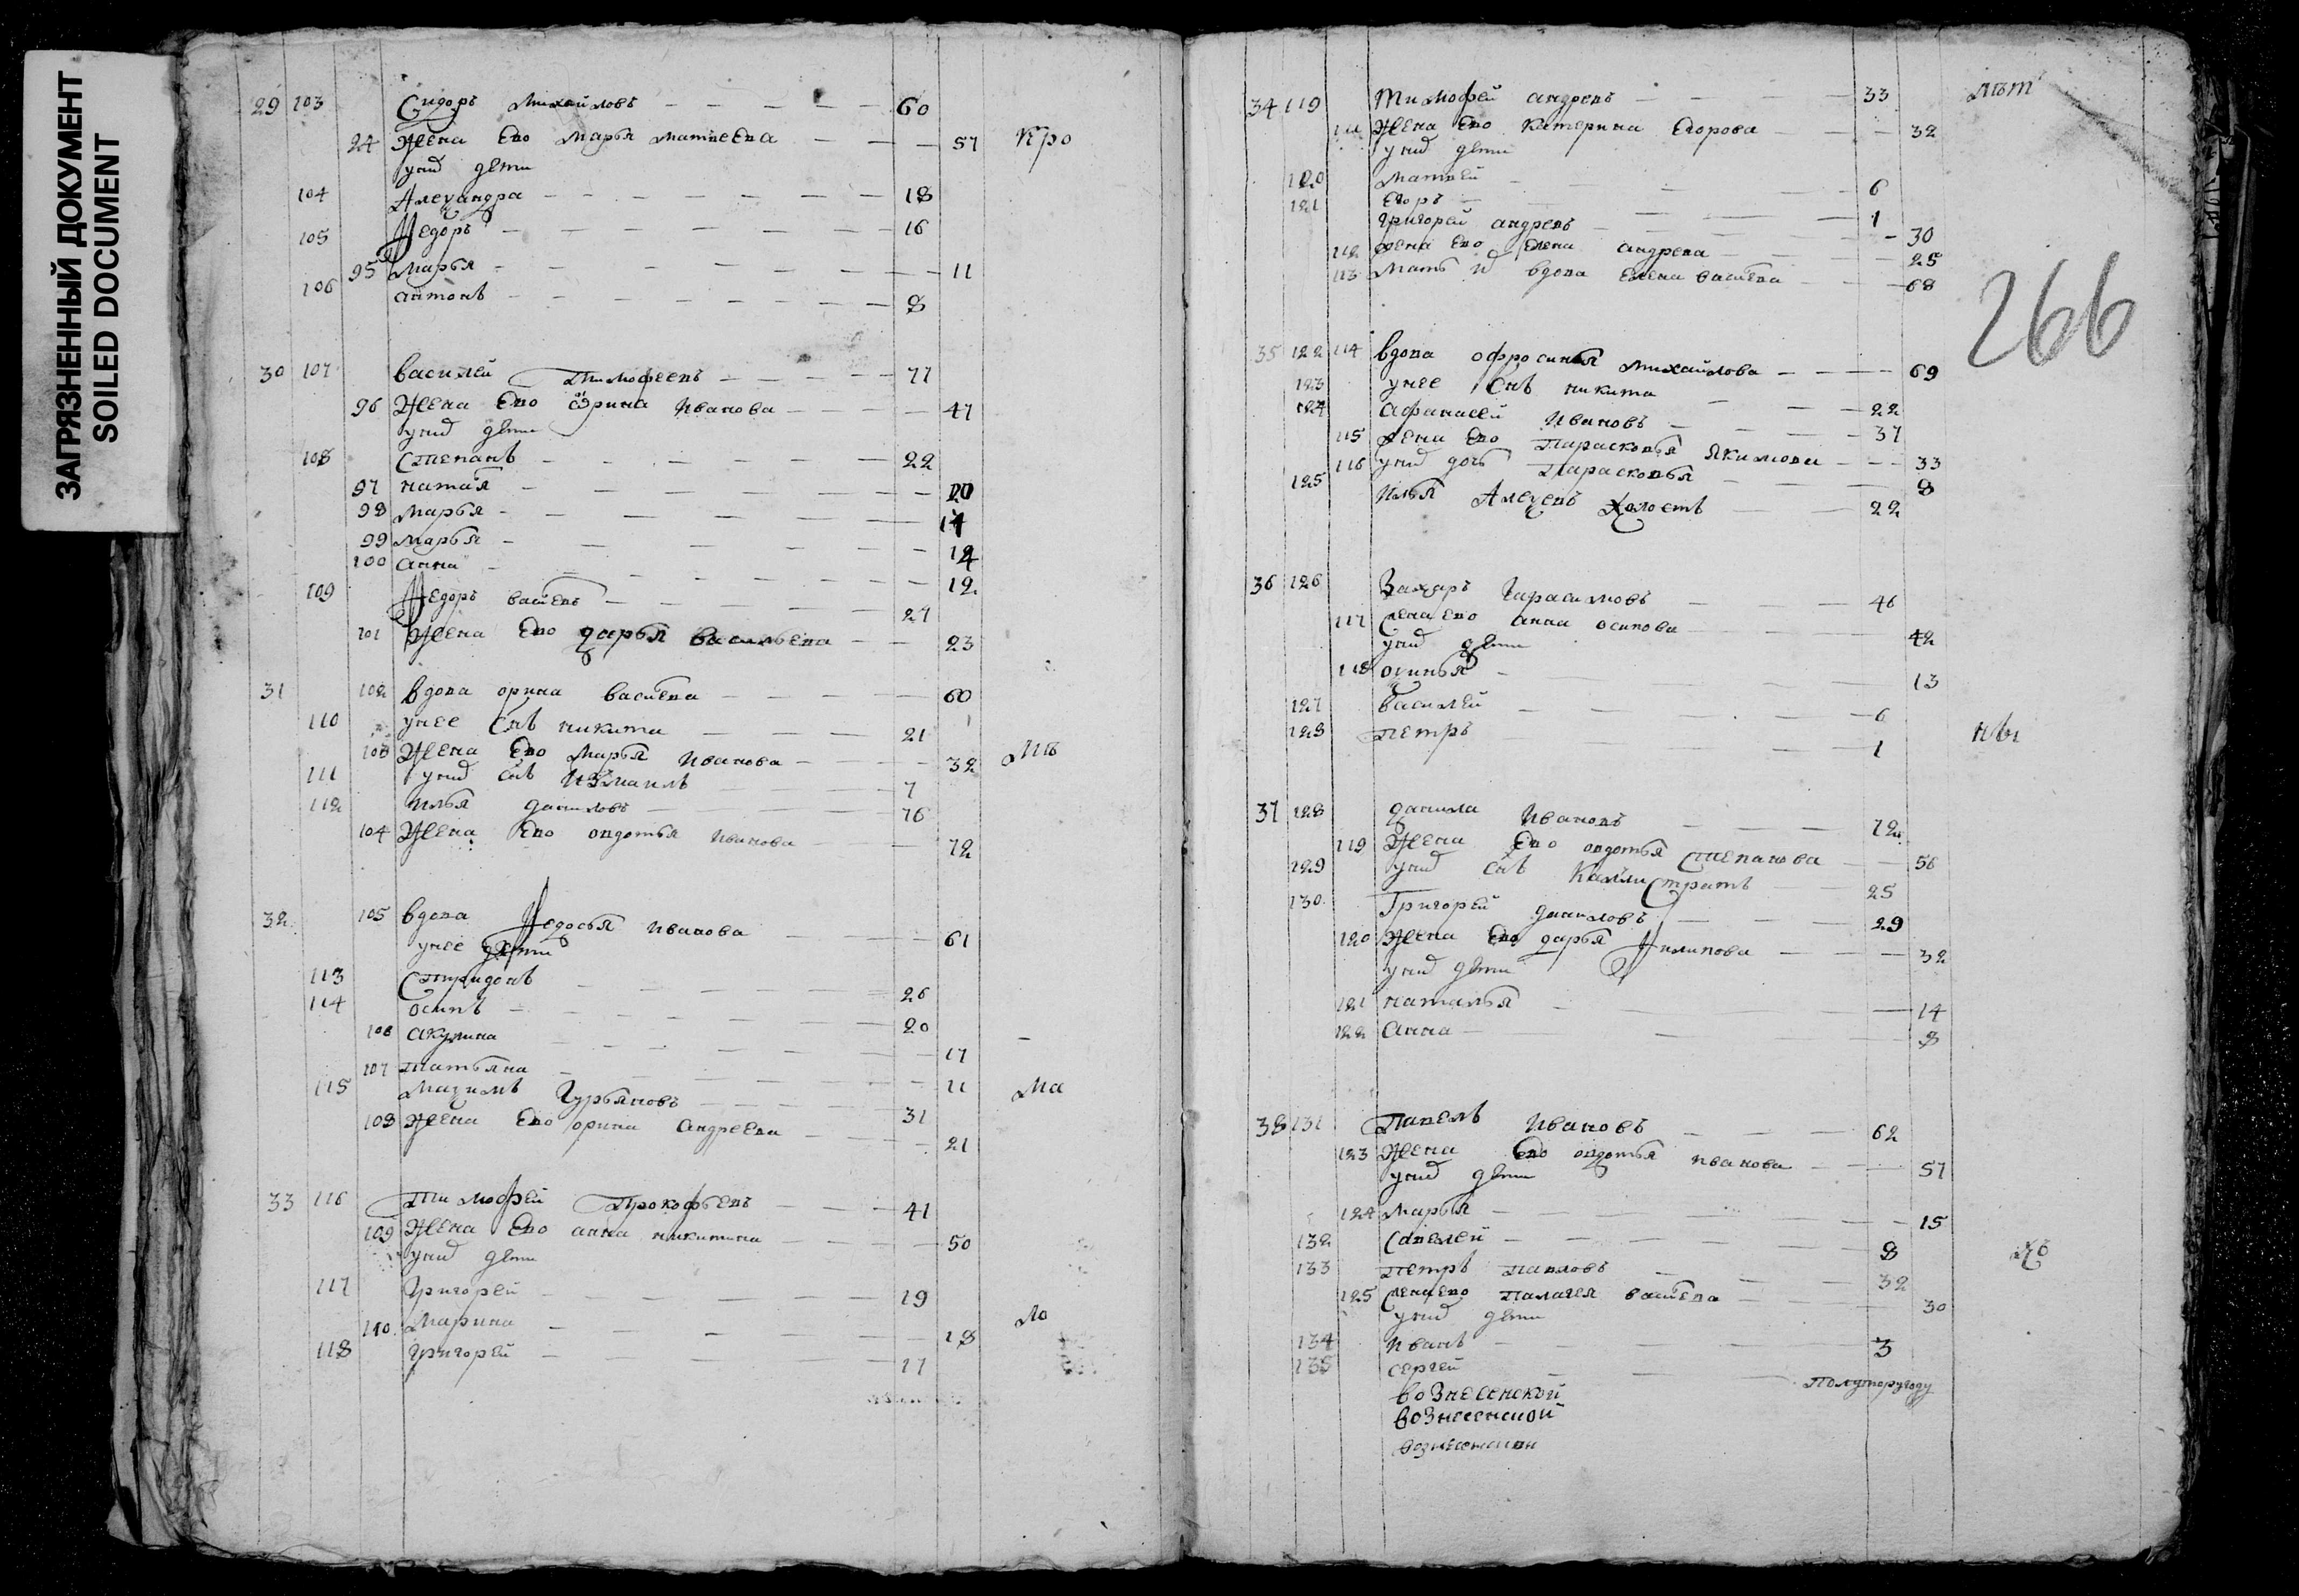 ЗАГРЯЗНЕННЫЙ ДОКУМЕНТ
SOILED DOCUMENT
29 103 Сидоръ Михайловъ 60
94 Жена Ево Марья Матвеева 57 Кро
унихъ дети
104 Алеѯандра 18
105 Ѳедоръ 16
95 Марья 11
106 антонъ 8
30 107 василей Тимофеевъ 77
96 Жена Ево орина Иванова 47
унихъ дети
108 Степанъ 22
97 наталя 20
98 Марья 17
99 Марья 14
100 анна 12
109 Ѳедоръ васильевъ 27
101 Жена Ево дарья Васильева 23
31 102 вдова орина васильева 60
110 унее сынъ никита 21
103 Жена Ево Марья Иванова 32
111 унихъ сынъ Измаилъ 7
112 Илья даниловъ 76
104 Жена Ево овдотья Иванова 72
32 105 вдова Ѳедосья Иванова 61
унее дети
113 Спиридонъ 26
114 осипъ 20
106 акулина 17
107 Татьяна 11
115 Маѯимъ Гурьяновъ 31 Ма
108 Жена Ево орина Андреева 21
33 116 Тимофей Прокофьевъ 41
109 Жена Ево анна никитина 50
унихъ дети
117 Григорей 19
110 Марина 18 Ло
118 Григорей 17
34 119 Тимофей андревъ 33
111 Жена Ево Катерина Егорова 32
унихъ дети
120 Матвей 6
121 Егоръ 1
Григорей андревъ 30
112 жена Ево Елена андрева 25
113 Мать ихъ вдова Елена васильева 68
266
35 122 114 вдова офросинья Михайлова 69
123 унее сынъ никита 22
124 афанасей Ивановъ 37
115 жена Ево Парасковья Якимова 33
116 унихъ дочь Парасковья 8
125 Илья Алеѯевъ Холостъ 22
36 126 Захаръ Гарасимовъ 46
117 жена ево анна осипова 42
унихъ дети
118 оѯинья 13
127 василей 6
128 петръ 1
37 128 данила Ивановъ 72
119 Жена Ево овдотья Степанова 56
129 унихъ сынъ Каллистратъ 25
130 Григорей даниловъ 29
120 Жена Ево дарья Ѳилипова 32
унихъ дети
121 наталья 14
122 анна 8
38 131 Павелъ Ивановъ 62
123 Жена Ево овдотья иванова 57
унихъ дети
124 Марья 15
132 Савелей 8
133 петръ павловъ 32
125 жена ево палагея васильева 30
унихъ дети
134 иванъ 3
135 сергей полуторугоду
вознесенской
вознесенской